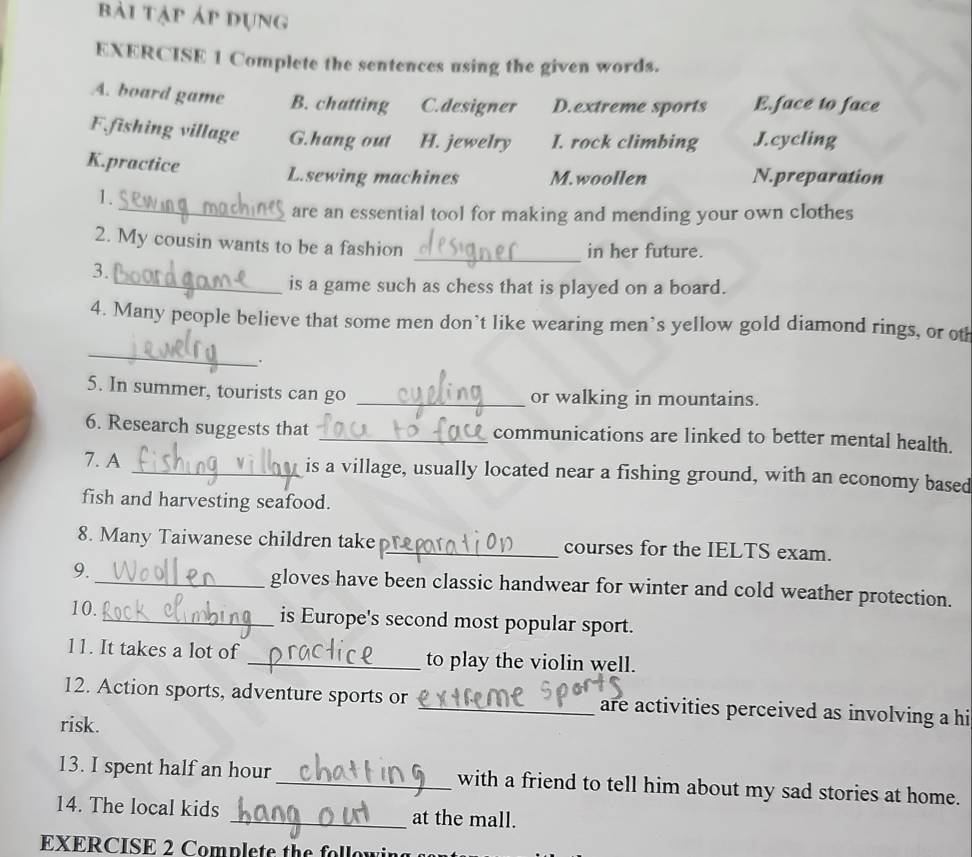 BÀI TẬP ÁP DỤNG
EXERCISE 1 Complete the sentences using the given words.
A. board game B. chatting C.designer D.extreme sports E.face to face
F.fishing village G.hang out H. jewelry I. rock climbing J.cycling
K.practice L.sewing machines M.woollen N.preparation
1. Sewing machines are an essential tool for making and mending your own clothes
2. My cousin wants to be a fashion designer in her future.
3. Board game is a game such as chess that is played on a board.
4. Many people believe that some men don't like wearing men's yellow gold diamond rings, or oth
jewelry.
5. In summer, tourists can go cycling or walking in mountains.
6. Research suggests that face to face communications are linked to better mental health.
7. A fishing village is a village, usually located near a fishing ground, with an economy based
fish and harvesting seafood.
8. Many Taiwanese children take preparation courses for the IELTS exam.
9. Woollen gloves have been classic handwear for winter and cold weather protection.
10. Rock climbing is Europe's second most popular sport.
11. It takes a lot of practice to play the violin well.
12. Action sports, adventure sports or extreme sports are activities perceived as involving a hi
risk.
13. I spent half an hour chatting with a friend to tell him about my sad stories at home.
14. The local kids hang out at the mall.
EXERCISE 2 Complete the following